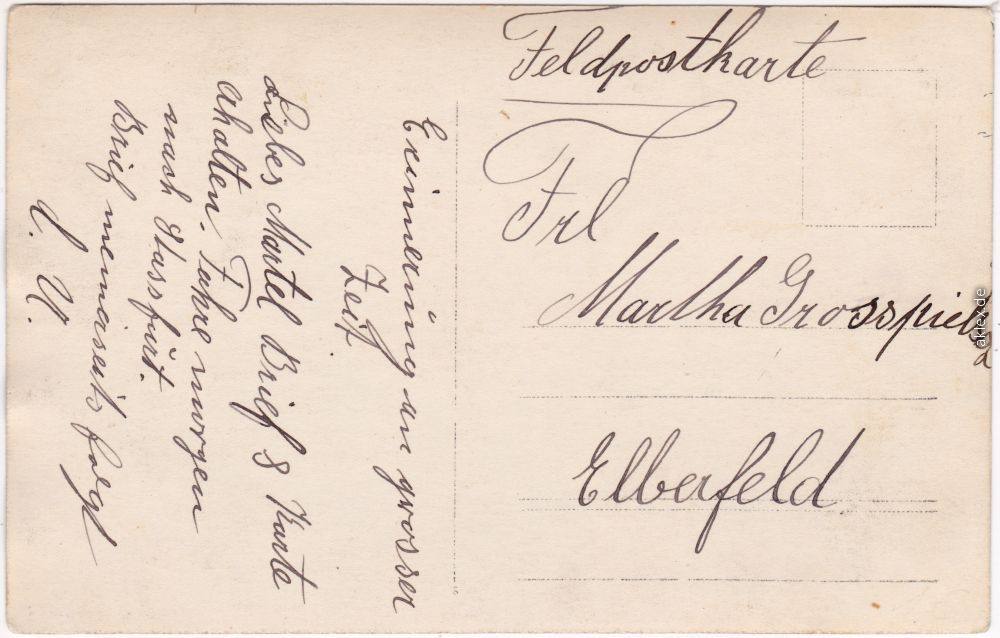 Feldpostkarte
Frl
Martha Grosspietsch
Elberfeld
Erinnerung an grosser
Zeit
Liebes Martel Brief & Karte
ehalten. Fahre morgen
nach Stassfurt.
Brief meinerseits folgt
d. U.
akiex.de